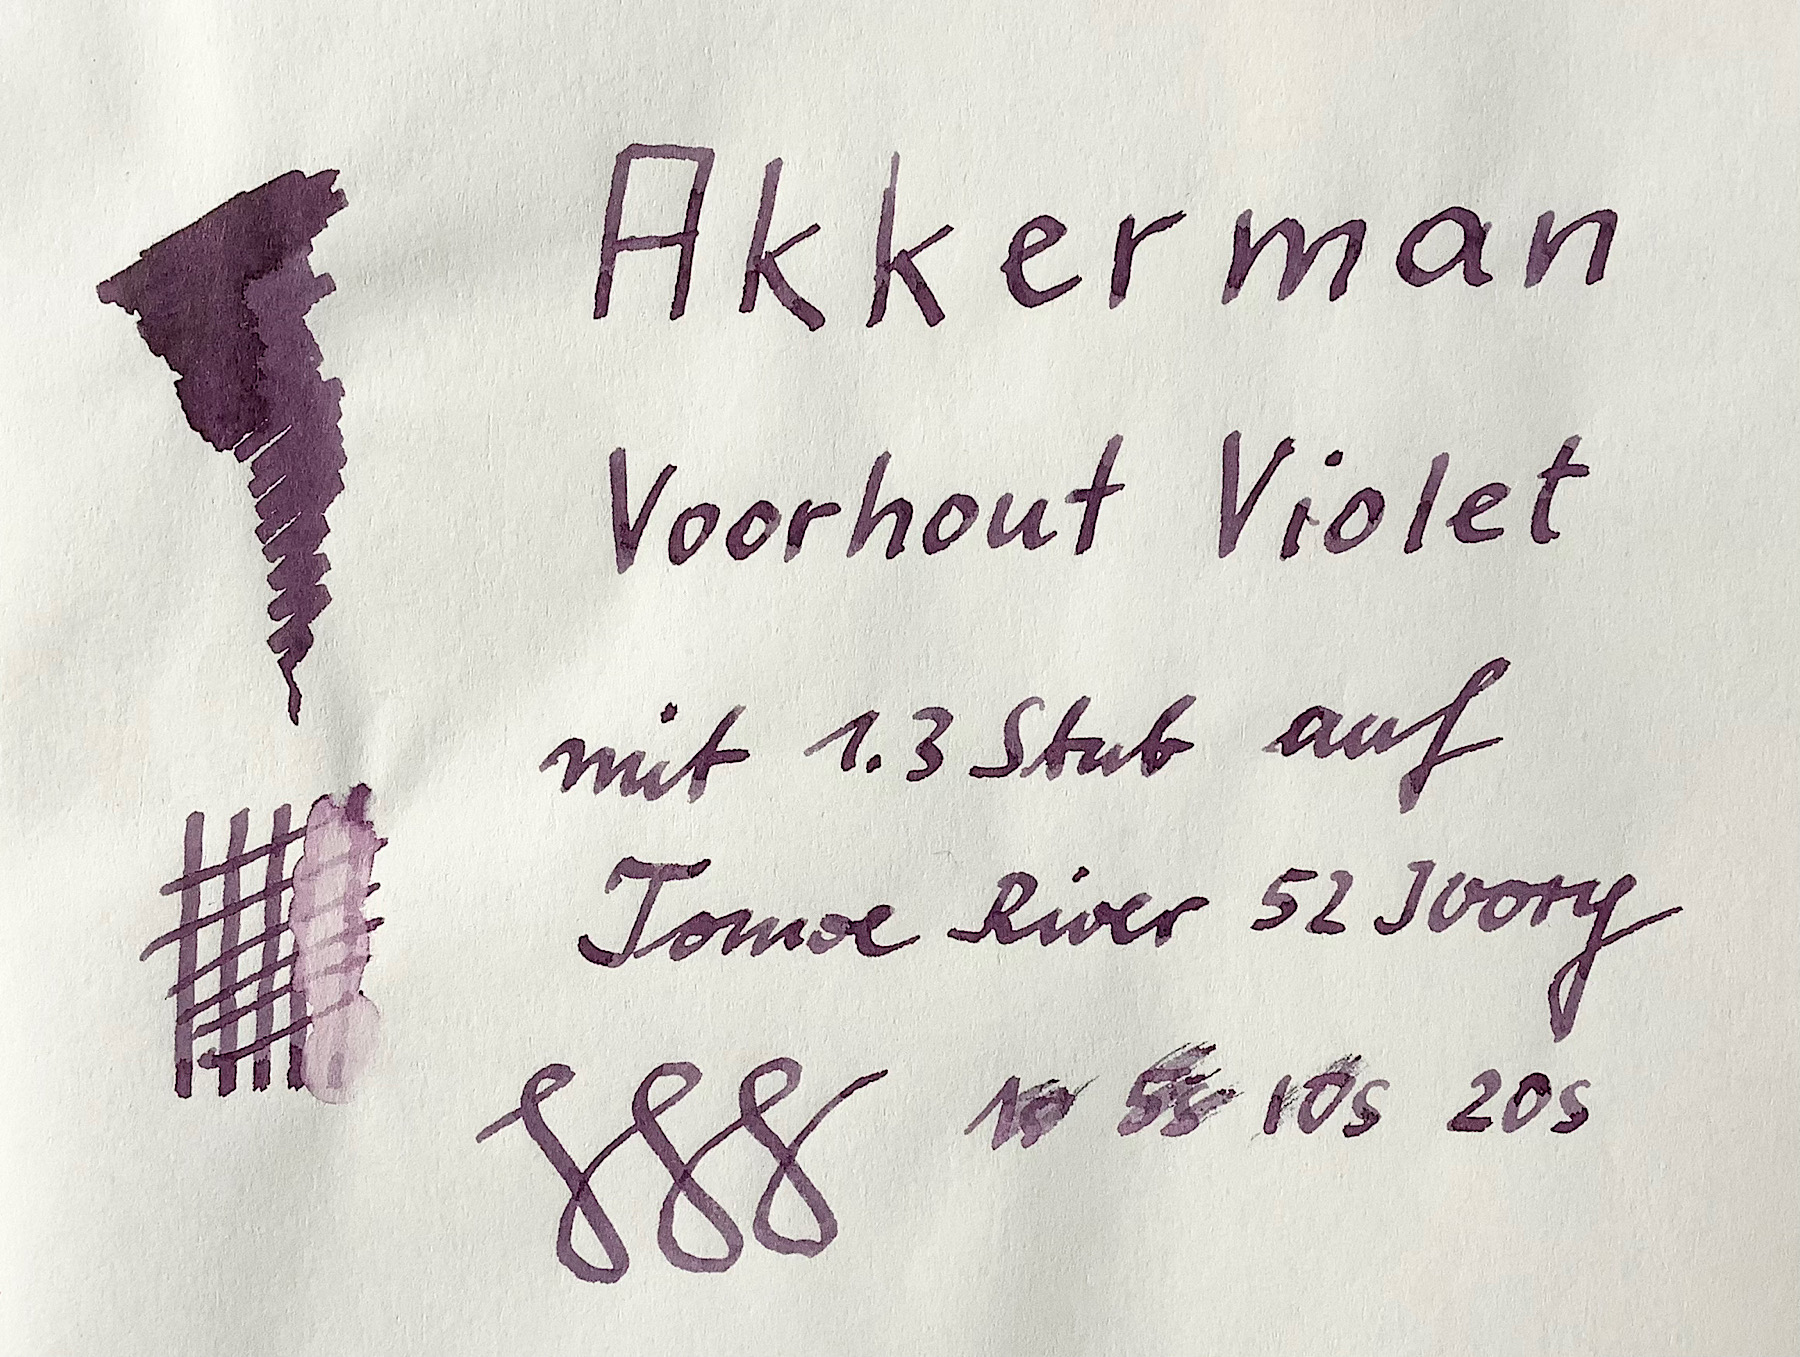 Akkerman
Voorhout Violet
mit 1.3 Stub auf
Tomoe River 52 Ivory
1s 5s 10s 20s